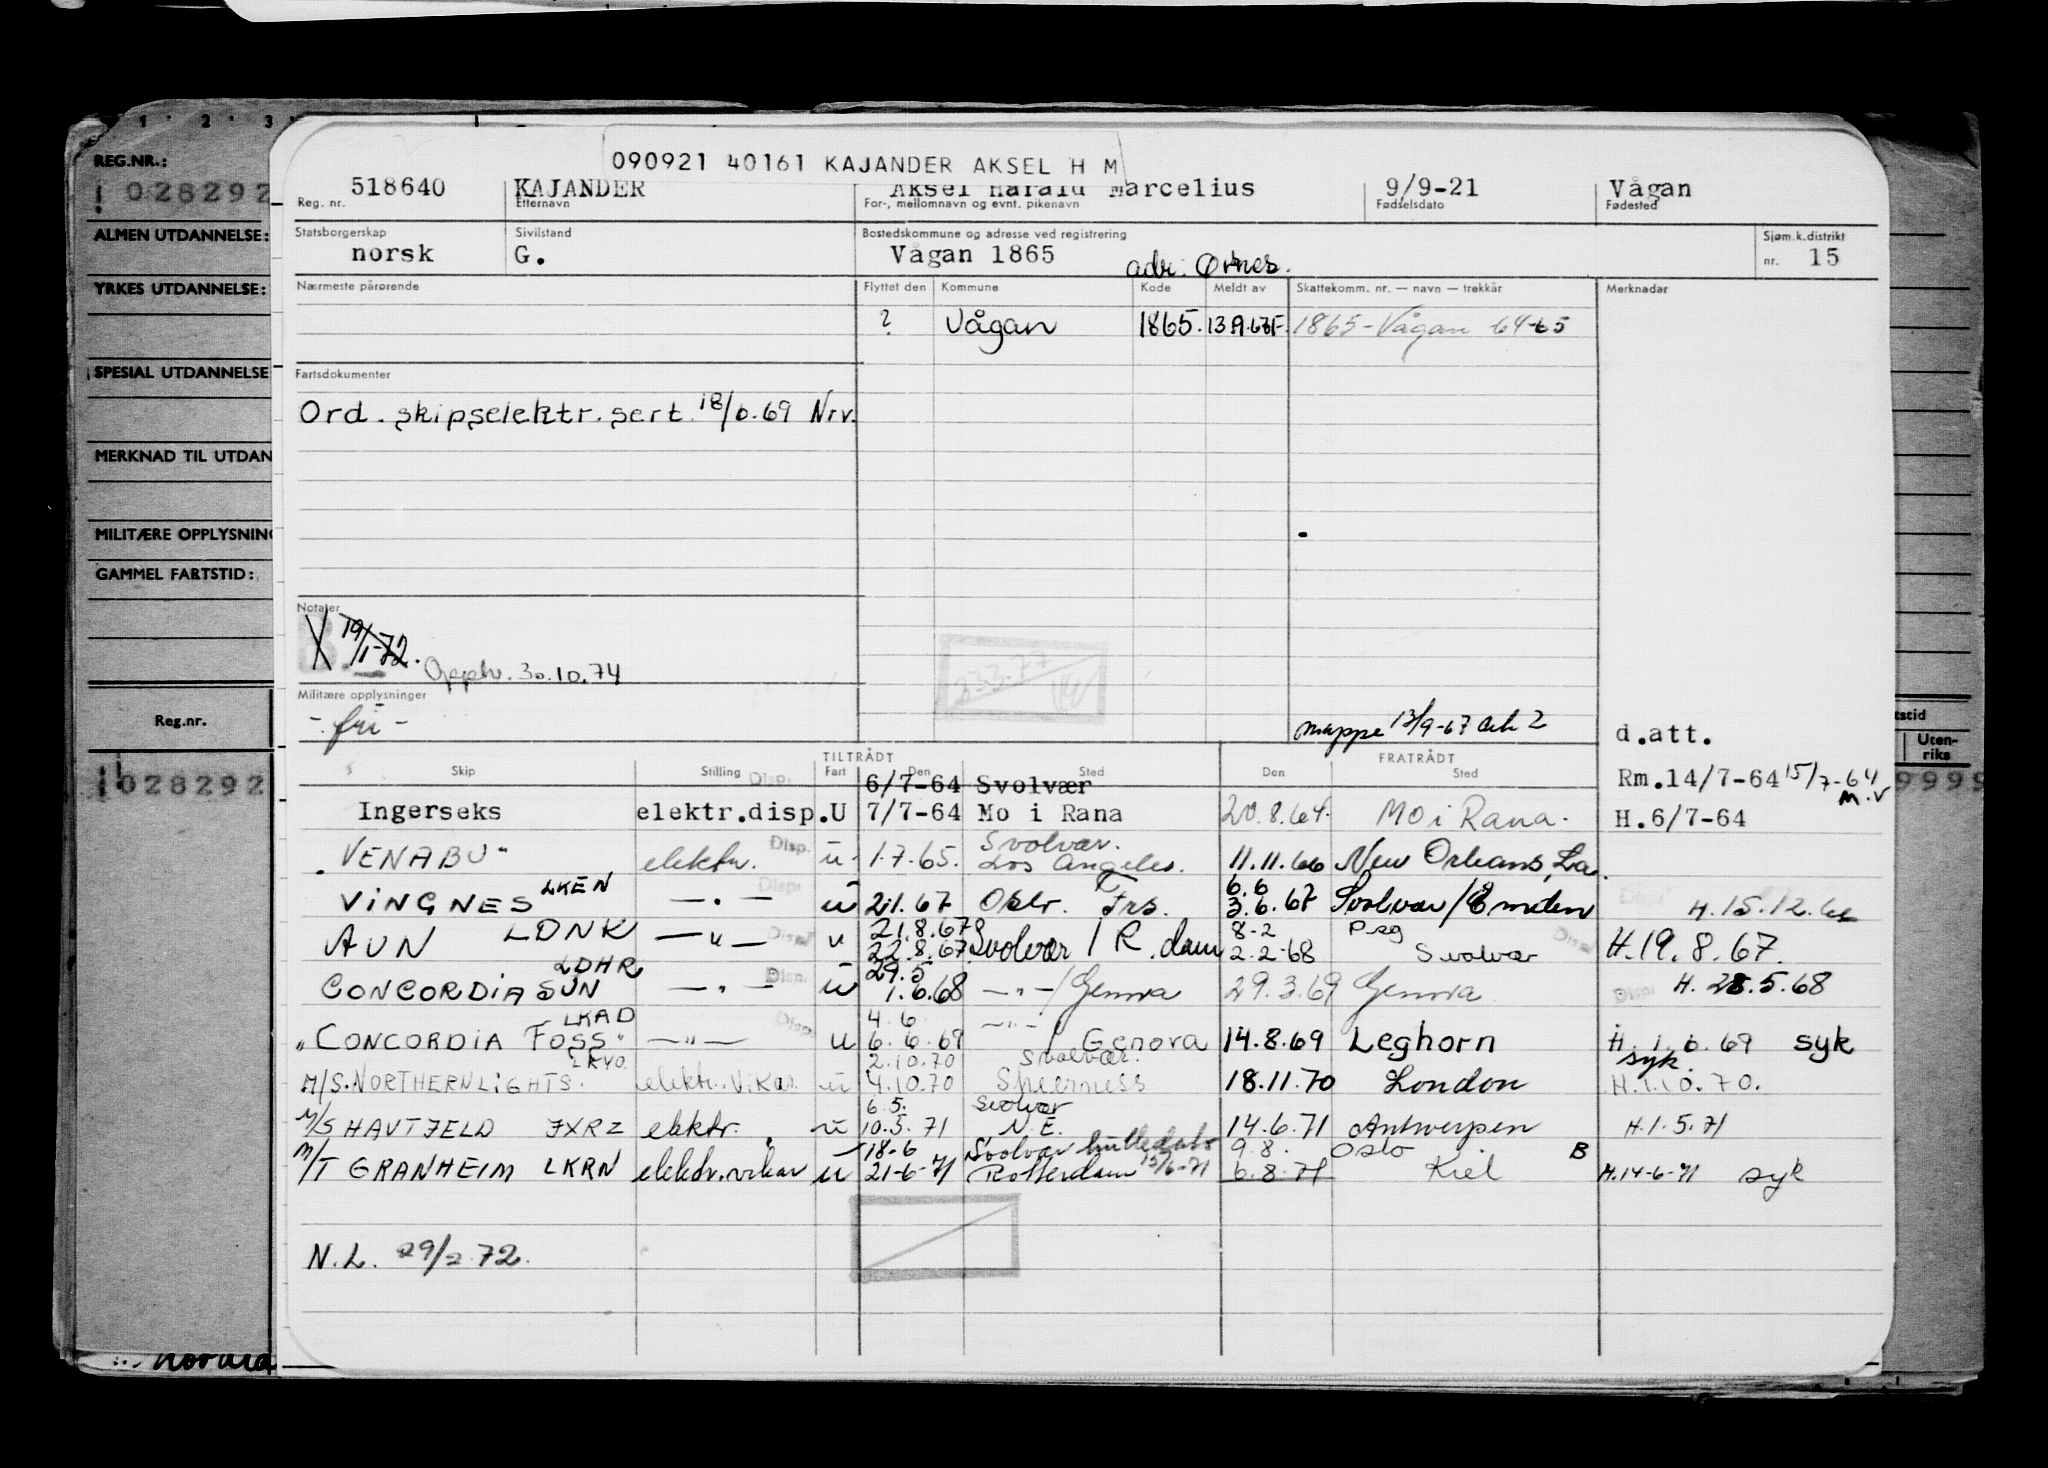 1 2 3
REG.NR.:
028292
ALMEN UTDANNELSE:
YRKES UTDANNELSE:
SPESIAL UTDANNELSE
MERKNAD TIL UTDAN
MILITÆRE OPPLYSNIN
GAMMEL FARTSTID:
Reg.nr.
028292
090921 40161 KAJANDER AKSEL H M
518640 KAJANDER Aksel Harald Marcelius 9/9-21 Vågan
Reg. nr. Etternavn For-, mellomnavn og evnt. pikenavn Fødselsdato Fødested
Statsborgerskap Sivilstand Bostedskommune og adresse ved registrering Sjøm.k.distrikt
norsk G. Vågan 1865 adr. Ørnes. nr. 15
Nærmeste pårørende Flyttet den Kommune Kode Meldt av Skattekomm. nr. — navn — trekkår Merknader
? Vågan 1865. 1865-Vågan 64-65
Fartsdokumenter
Ord. skipselektr. sert. 18/6.69 Nrv.
Notater
19/1-72.
Opphv. 30.10.74
23.3.77
Militære opplysninger
- fri -
mappe 13/9-67 ark 2
d.att.
TILTRÅDT FRATRÅDT
Skip Stilling Disp. Fart Den Sted Den Sted
6/7-64 Svolvær Rm.14/7-64 15/7-64 M.V
Ingerseks elektr.disp.U 7/7-64 Mo i Rana 20.8.64. Mo i Rana. H.6/7-64
VENABU" elektr. Disp. u. 1.7.65. Svolvær. Los Angeles. 11.11.66 New Orleans, La.
VINGNES LKEN —"— Disp. u 2.1.67 Oslr. Frs. 6.6 3.6.67 Svolvær/Emden Disp. H.15.12.66
AUN LDNK —"— Disp. u 21.8.67 22.8.67 Svolvær / R.dam 8-2 2.2-68 Psg Svolvær Disp H.19.8.67.
CONCORDIA SUN LDHR —"— Disp. u 29.5 1.6.68 —"—/Genova 29.3.69 Genova Disp. H. 28.5.68
"CONCORDIA FOSS" LKAD —"— Disp. u 4.6 6.6.69 —"—/ Genova 14.8.69 Leghorn H. 1.6.69 syk
M/S.NORTHERN LIGHTS. LKVO. elektr. vikar u 2.10.70 4.10.70 Svolvær. Sheerness 18.11.70 London syk. H.1.10.70.
M/S HAVTJELD JXRZ elektr. u 6.5. 10.5.71 Svolvær N.E. 14.6.71 Antwerpen H.1.5.71
M/T GRANHEIM LKRN elektr.vikar u 18-6 21-6-71 Svolvær Rotterdam 15/6-71 9.8. 6.8.71 Oslo Kiel B H.14-6-71 syk
N.L. 29/2.72.
stid
Uten-
riks
9999